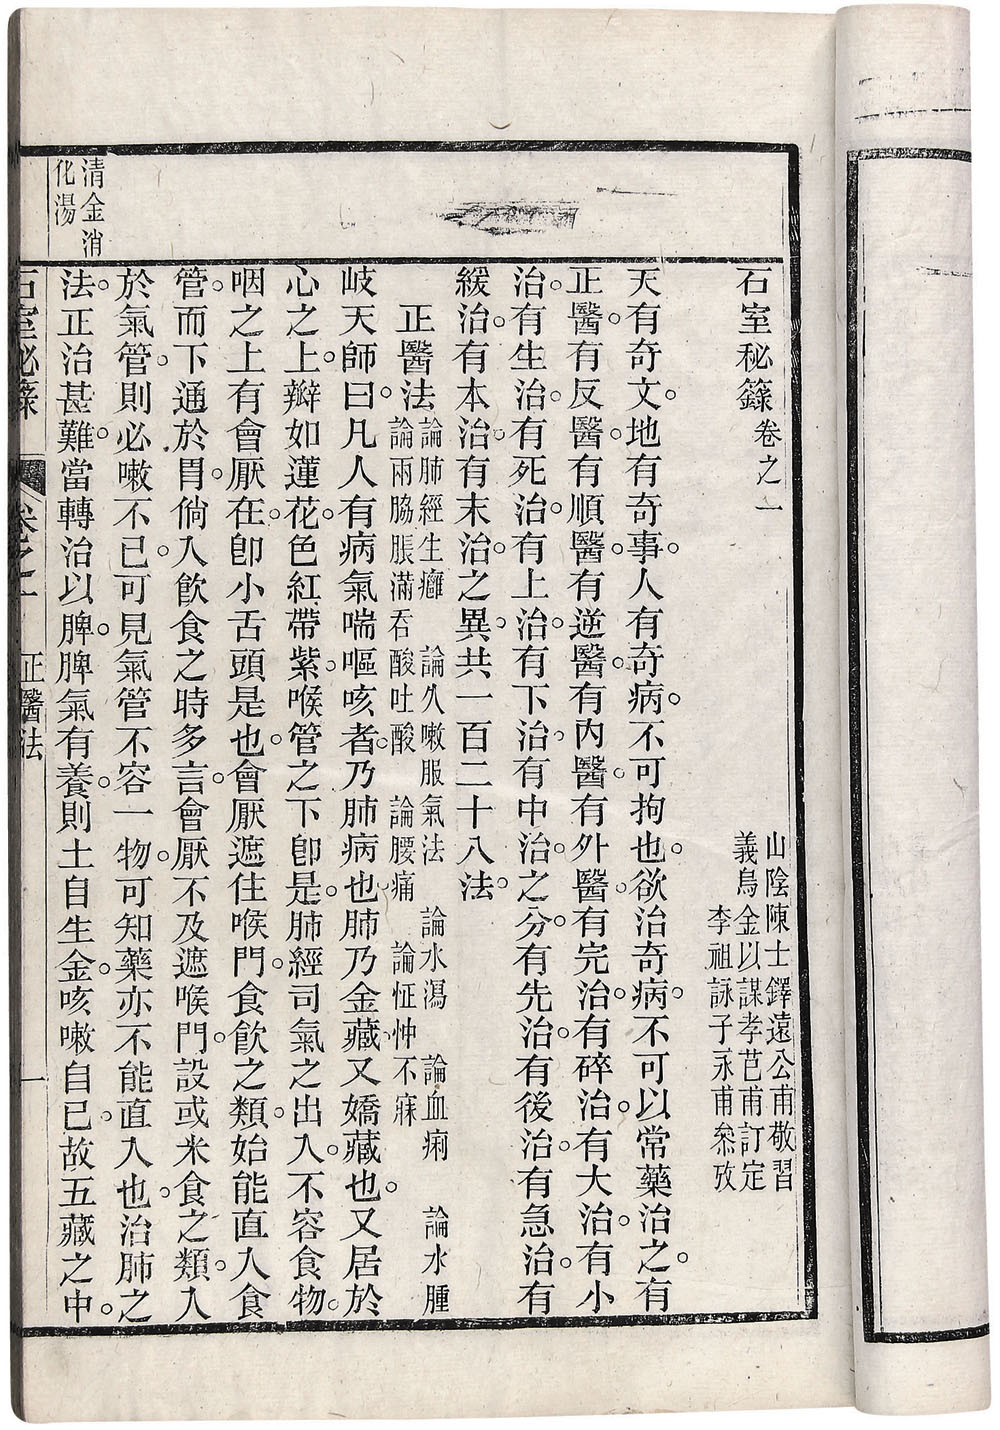 石室秘籙卷之一
山陰陳士鐸遠公甫敬習
義烏金以謀孝芑甫訂定
李祖詠子永甫叅攷
天有奇文。地有奇事。人有奇病。不可拘也。欲治奇病。不可以常藥治之。有
正醫。有反醫。有順醫。有逆醫。有內醫。有外醫。有完治。有碎治。有大治。有小
治。有生治。有死治。有上治。有下治。有中治。之分。有先治。有後治。有急治。有
緩治。有本治。有末治。之異。共一百二十八法。
正醫法
論肺經生癰 論久嗽服氣法 論水瀉 論血痢 論水腫
論兩脇脹滿吞酸吐酸 論腰痛 論怔忡不寐
岐天師曰。凡人有病氣喘嘔咳者。乃肺病也。肺乃金藏。又嬌藏也。又居於
心之上。瓣如蓮花。色紅帶紫。喉管之下卽是。肺經司氣之出入。不容食物。
咽之上有會厭在。卽小舌頭是也。會厭遮住喉門。食飮之類。始能直入食
管。而下通於胃。倘入飮食之時多言。會厭不及遮喉門。設或米食之類。入
於氣管。則必嗽不已。可見氣管不容一物。可知藥亦不能直入也。治肺之
法。正治甚難。當轉治以脾。脾氣有養。則土自生金。咳嗽自已。故五藏之中。
清金消
化湯
石室秘籙 卷之一 正醫法 一